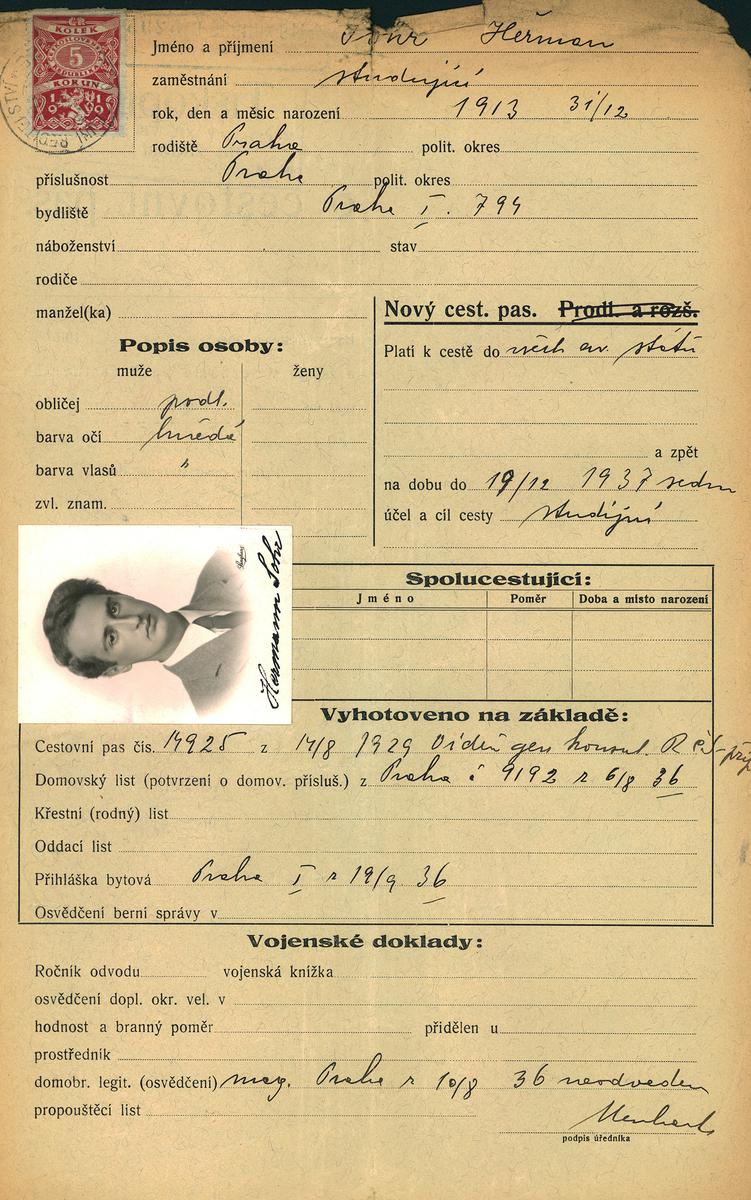 ČR
KOLEK
5
KORUN
1919
Jméno a příjmení Heřman
zaměstnání studující
rok, den a měsíc narození 1913 31/12
rodiště Praha polit. okres
příslušnost Praha polit. okres
bydliště Praha I. 794
náboženství stav
rodiče
manžel(ka)
Nový cest. pas. Prodl. a rozš.
Popis osoby:
muže ženy
Platí k cestě do všech ev. států
obličej podl.
barva očí hnědé
barva vlasů "
zvl. znam.
a zpět
na dobu do 19/12 1937
účel a cíl cesty studijní
Hermann
Spolucestující:
Jméno Poměr Doba a místo narození
Vyhotoveno na základě:
Cestovní pas čís. 14925 z 14/8 1929 Vídeň gen. konsul.
Domovský list (potvrzení o domov. přísluš.) z Praha č 9192 z 6/8 36
Křestní (rodný) list
Oddací list
Přihláška bytová Praha I z 19/9 36
Osvědčení berní správy v
Vojenské doklady:
Ročník odvodu vojenská knížka
osvědčení dopl. okr. vel. v
hodnost a branný poměr přidělen u
prostředník
domobr. legit. (osvědčení) mag. Praha z 10/8 36 neodveden
propouštěcí list
podpis úředníka